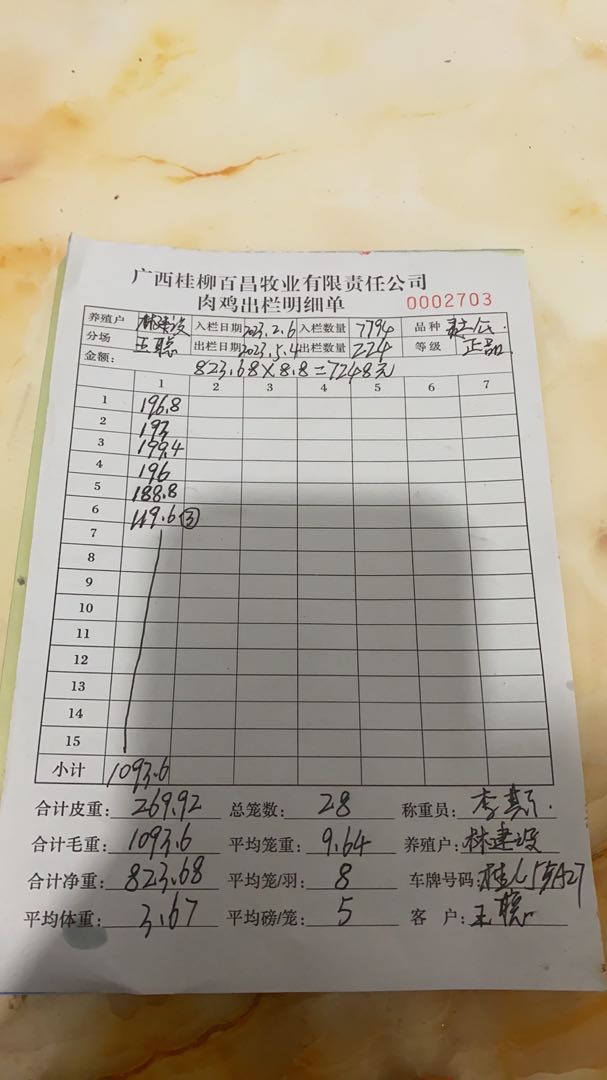 广西桂柳百昌牧业有限责任公司
肉鸡出栏明细单 0002703
养殖户 林建设 入栏日期 2023.2.6 入栏数量 7794 品种
分场 王聪 出栏日期 2023.5.4 出栏数量 224 等级 正品
金额: 823.68×8.8=7248元
1 2 3 4 5 6 7
1 196.8
2 193
3 199.4
4 196
5 188.8
6 119.6 ③
7
8
9
10
11
12
13
14
15
小计 1093.6
合计皮重: 269.92 总笼数: 28 称重员: 李
合计毛重: 1093.6 平均笼重: 9.64 养殖户: 林建设
合计净重: 823.68 平均笼/羽: 8 车牌号码:
平均体重: 3.67 平均磅/笼: 5 客户: 王聪